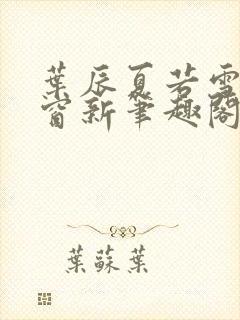 葉辰夏若雪
窗新筆趣閣
葉蘇葉